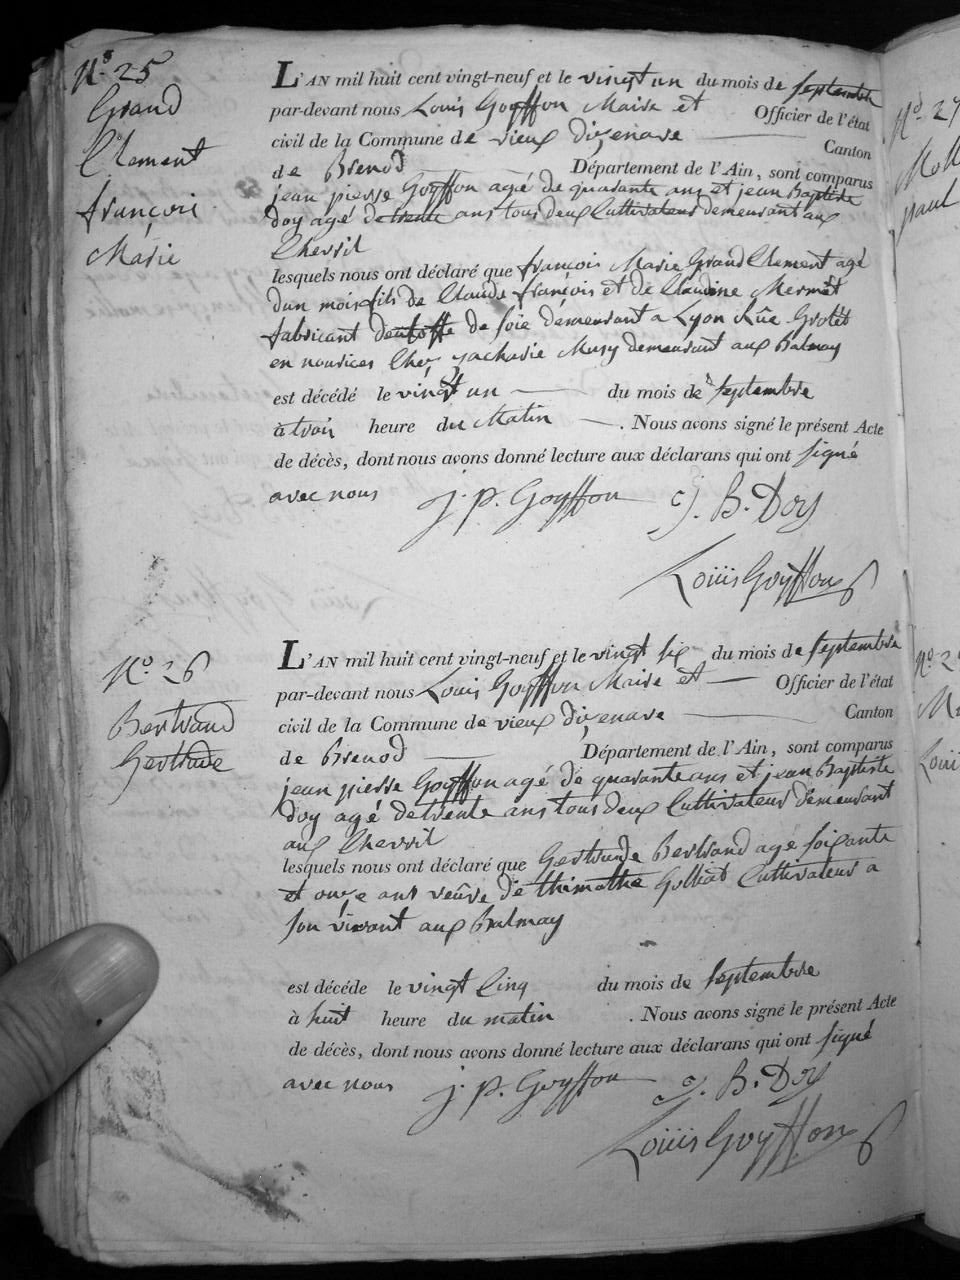 N.o 25
Grand
Clement
françois
Marie
L'AN mil huit cent vingt-neuf et le vingt un du mois de septembre
par-devant nous Louis Goyffon Maire et Officier de l'état
civil de la Commune de vieux d'izenave Canton
de Brenod Département de l'Ain, sont comparus
jean pierre Goyffon agé de quarante ans et jean Baptiste
doy agé de trente ans tous deux Cultivateurs demeurant aux
Cherril
lesquels nous ont déclaré que françois Marie Grand Clement agé
dun mois fils de Claude françois et de Claudine Mermet
fabricant de de soie demeurant a Lyon Rûe Grolét
en nourices Chez zacharie Musy demeurant aux Balmay
est décédé le vingt un du mois de septembre
à trois heure du Matin . Nous avons signé le présent Acte
de décès, dont nous avons donné lecture aux déclarans qui ont signé
avec nous j. p. Goyffon j. B. Doy
Louis Goyffon
N.o 26
Bertrand
Gertrude
L'AN mil huit cent vingt-neuf et le vingt six du mois de septembre
par-devant nous Louis Goyffon Maire et Officier de l'état
civil de la Commune de vieux d'izenave Canton
de Brenod Département de l'Ain, sont comparus
jean pierre Goyffon agé de quarante ans et jean Baptiste
doy agé de trente ans tous deux Cultivateurs demeurant
aux Cherril
lesquels nous ont déclaré que Gertrude Bertrand agé soixante
et onze ans veûve de thimothé Golliat Cultivateur a
son vivant aux Balmay
est décédé le vingt Cinq du mois de septembre
à huit heure du matin . Nous avons signé le présent Acte
de décès, dont nous avons donné lecture aux déclarans qui ont signé
avec nous j. p. Goyffon j. B. Doy
Louis Goyffon
N.o 27